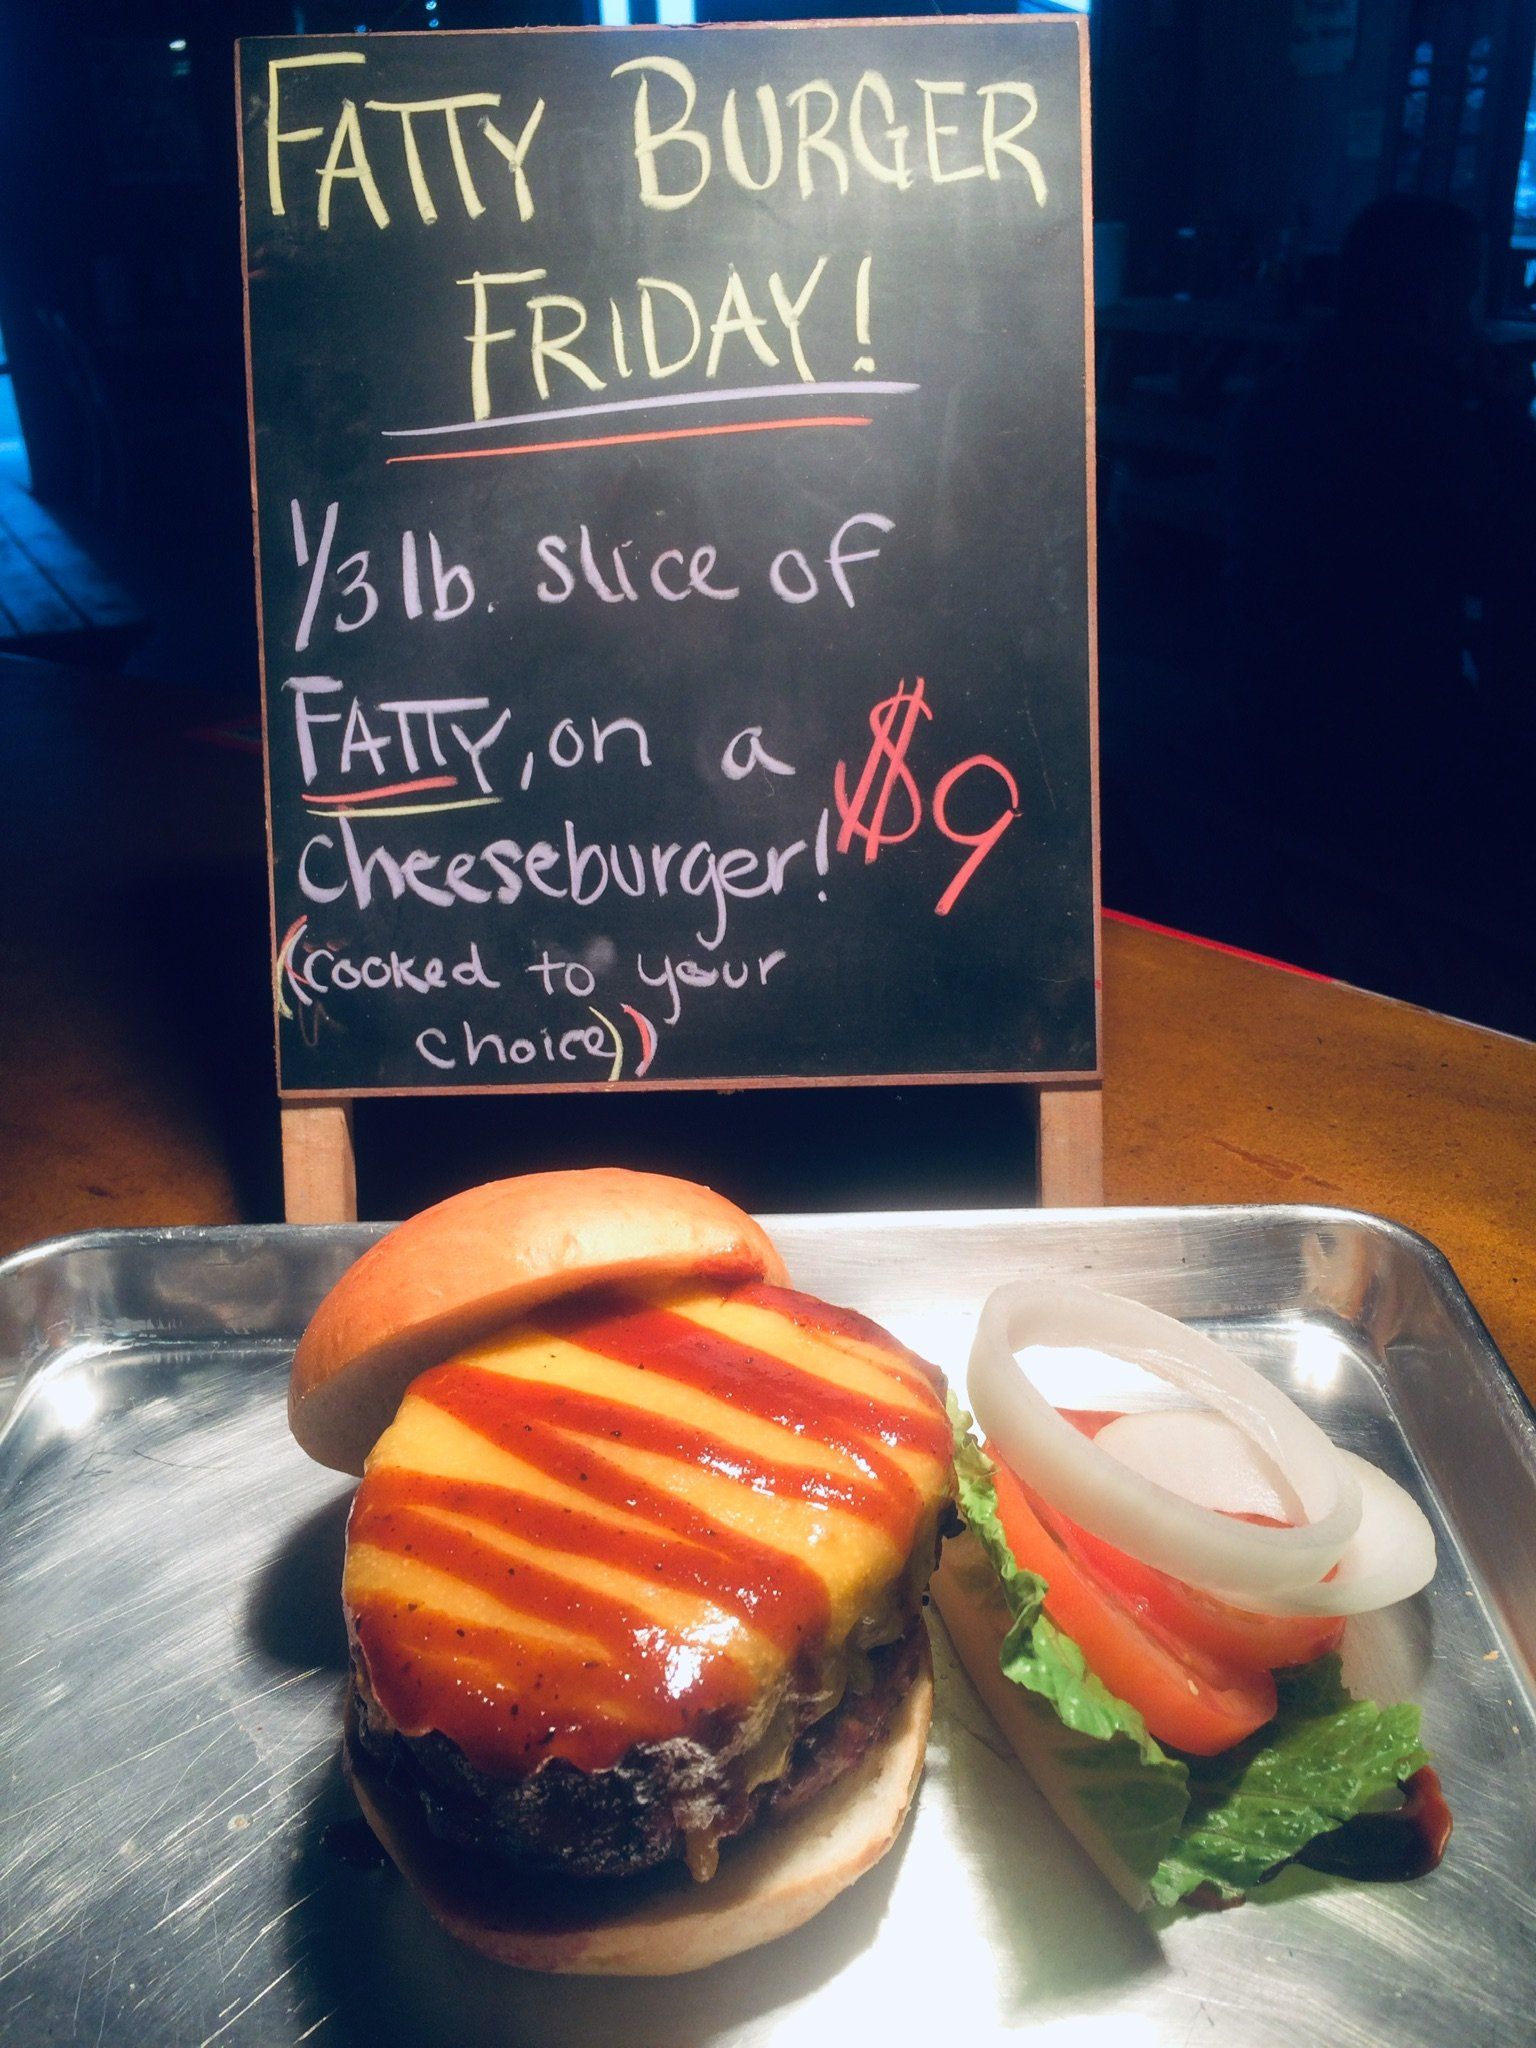 FATTY BURGER
FRIDAY!
1/3 lb. slice of
FATTY, on a
cheeseburger! $9
(cooked to your
choice))